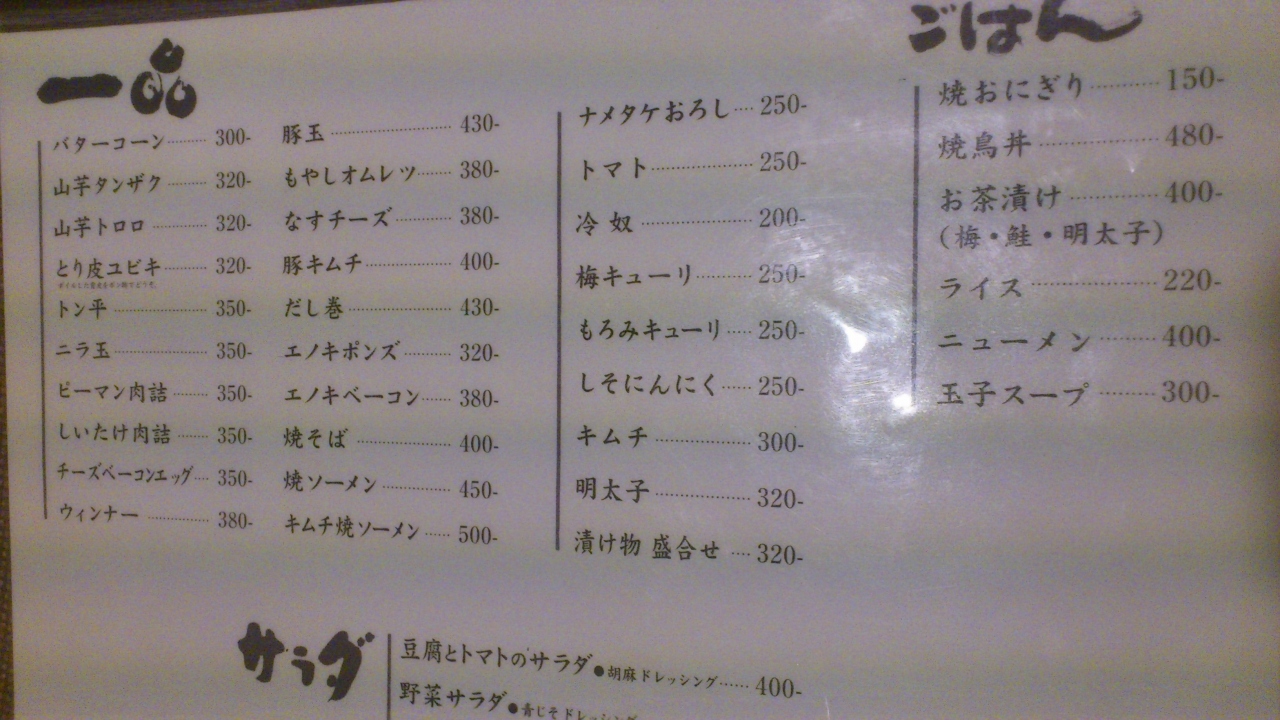 一品
バターコーン 300-
山芋タンザク 320-
山芋トロロ 320-
とり皮ユビキ 320-
トン平 350-
ニラ玉 350-
ピーマン肉詰 350-
しいたけ肉詰 350-
チーズベーコンエッグ 350-
ウィンナー 380-
豚玉 430-
もやしオムレツ 380-
なすチーズ 380-
豚キムチ 400-
だし巻 430-
エノキポンズ 320-
エノキベーコン 380-
焼そば 400-
焼ソーメン 450-
キムチ焼ソーメン 500-
ナメタケおろし 250-
トマト 250-
冷奴 200-
梅キューリ 250-
もろみキューリ 250-
しそにんにく 250-
キムチ 300-
明太子 320-
漬け物 盛合せ 320-
ごはん
焼おにぎり 150-
焼鳥丼 480-
お茶漬け 400-
(梅・鮭・明太子)
ライス 220-
ニューメン 400-
玉子スープ 300-
サラダ
豆腐とトマトのサラダ●胡麻ドレッシング 400-
野菜サラダ●青じそドレッシング